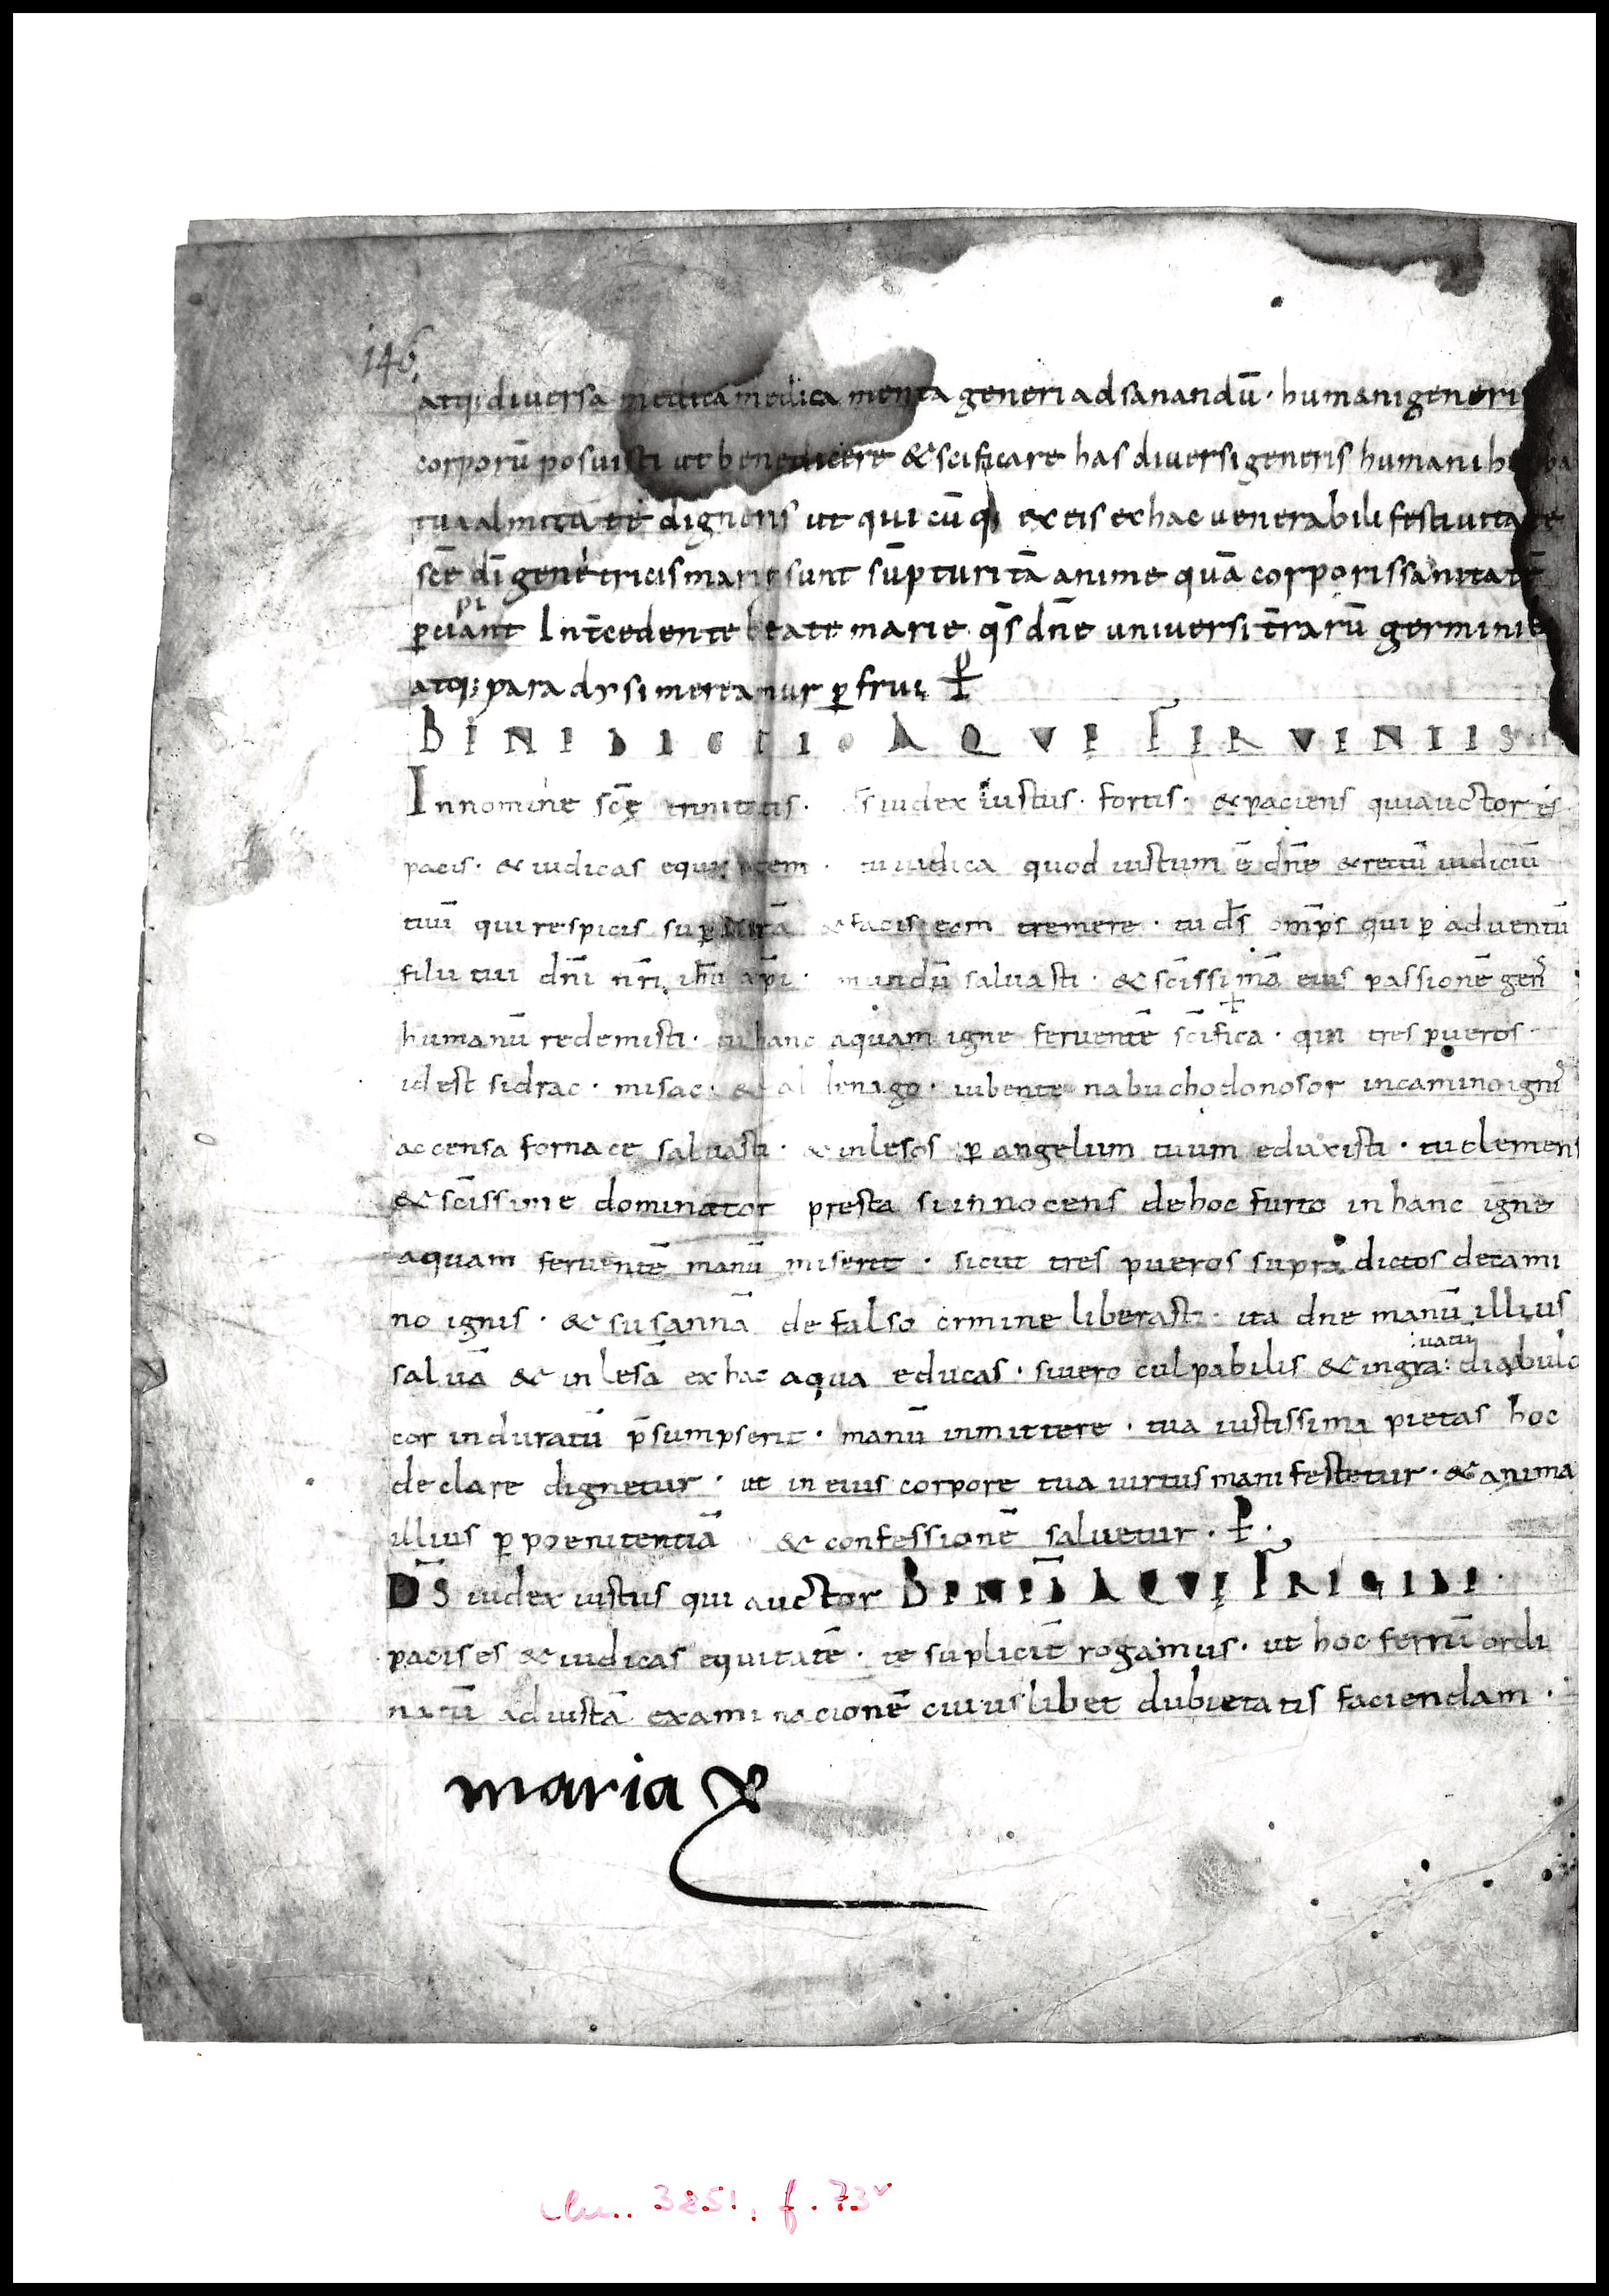 146
atq; diuersa medica menta generi ad sanandū · humani generis
corporū posuisti ut benedicere & scificare has diuersi generis humani
tua digneris ut qui cū q; ex eis ex hac uenerabili festiuitate
scē dī genetricis marie sunt sūpturi tā anime quā corporis sanitatē
ꝑcipiant Int̄cedente beate marie · q̄s dn̄e uniuersi t̄rarū germinis
atq; paradysi mereamur ꝑfrui P
BENEDICTIO AQVE FERVENTIS
In nomine scę trinitatis · ds iudex iustus · fortis · & paciens qui auctor es
pacis · & iudicas equitatem · tu iudica quod iustum ē dn̄e & rectū iudiciū
tuū qui respicis suꝑ terrā & facis eam tremere · tu ds̄ omp̄s qui ꝑ aduentū
filii tui dn̄i nr̄i ihū xp̄i · mundū saluasti · & sc̄issimā eius passionē gen
humanū redemisti · tu hanc aquam igne feruentē sc̄ifica · qui tres pueros ·
id est sidrac · misac · & abdenago · iubente nabuchodonosor in camino igni
accensa fornace saluasti · & inlesos ꝑ angelum tuum eduxisti · tu clemens
& sc̄issime dominator presta si innocens de hoc furto in hanc igne
aquam feruentē manū miserit · sicut tres pueros supra dictos de cami
no ignis · & susannā de falso crimine liberasti · ita dne manū illius
saluā & inlesā ex hac aqua educas · si uero culpabilis & ingra: diabulo
cor induratū p̄sumpserit · manū inmittere · tua iustissima pietas hoc
declare dignetur · ut in eius corpore tua uirtus manifestetur · & anima
illius ꝑ poenitentiā & confessionē saluetur · P ·
DS iudex iustus qui auctor BENED̄ AQVE FRIGIDE ·
pacis es & iudicas equitatē · te suplicit̄ rogamus · ut hoc ferrū ordi
natū ad iustā examinacionē cuius libet dubietatis faciendam ·
maria &
clm. 3851, f. 73v